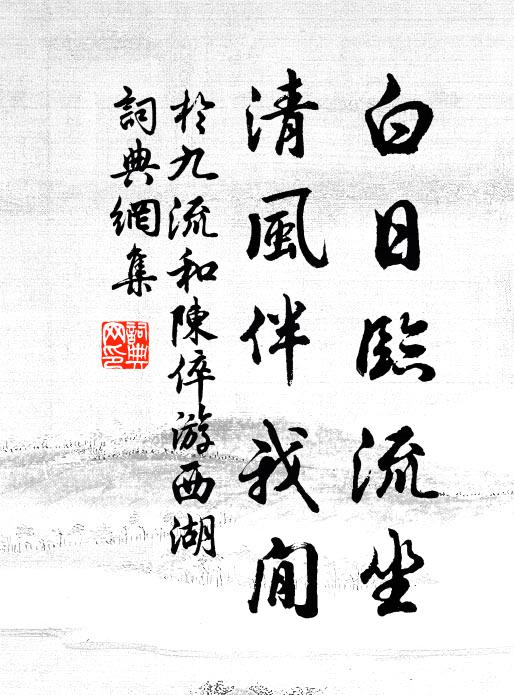 白日臨流坐
清風伴我閒
於九流和陳倅游西湖
詞典網集
詞典網印